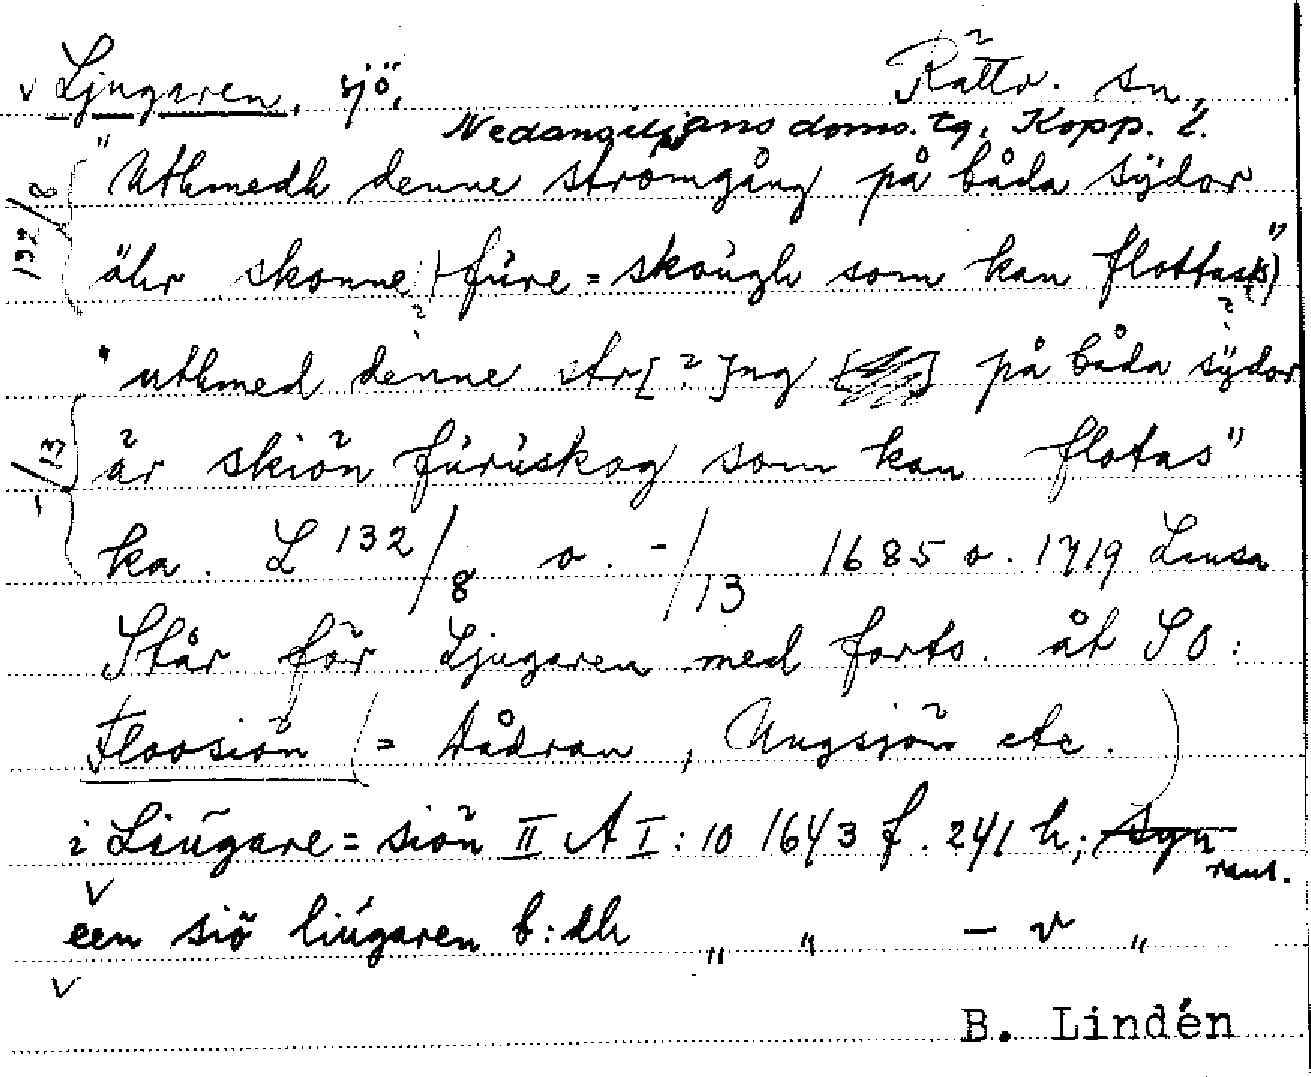 v Ljugaren, sjö, Rättv. sn,
Nedansiljans doms. tg. Kopp. l.
132/8 "Uthmedh denne strömgång på båda sÿdor
ähr skonne fure=skough som kan flottas(s)"
"uthmed denne str[?]ng på båda sÿdor
-/13 är skiön furuskog som kan flotas"
ka. L 132/8 o. -/13 1685 o. 1719
Står för Ljugaren med forts. åt SO:
Floosiön (= Dådran, Ungsjön etc.)
i Liugare=siön II A I:10 1643 f. 241 h; syn
rans.
v
een siö liugaren b:dh „ „ – v „
v
B. Lindén